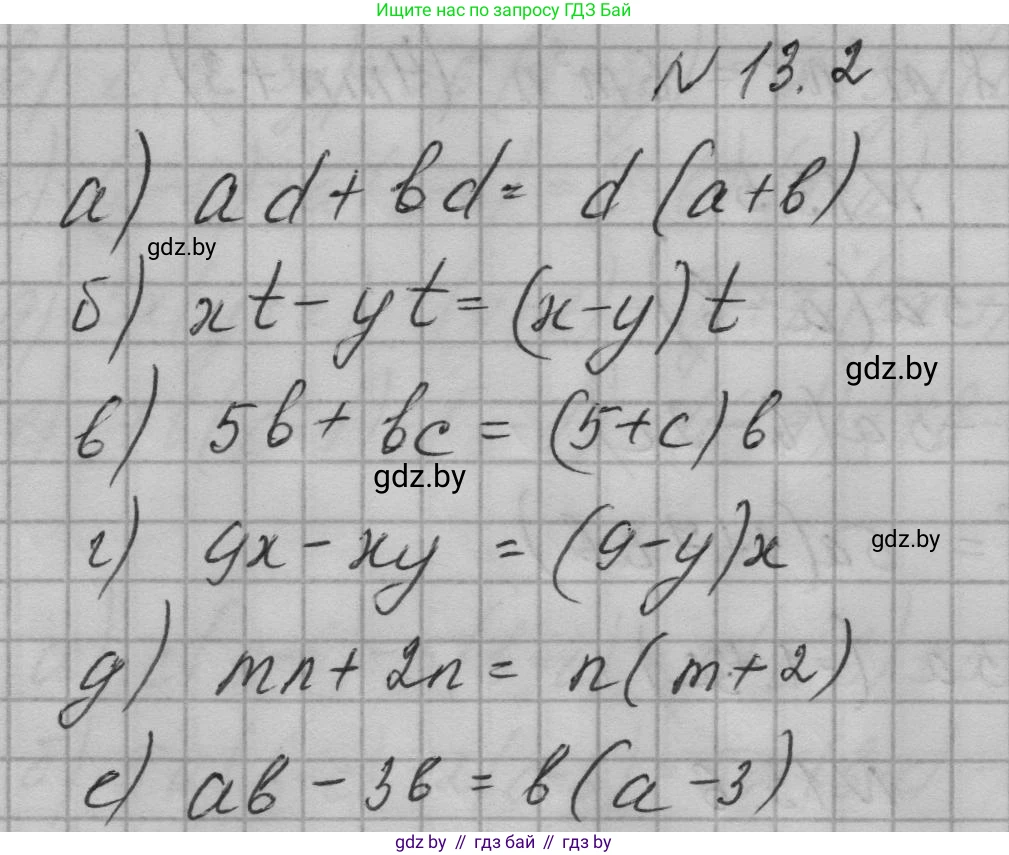 Ищите нас по запросу ГДЗ Бай
N 13.2
а) ad + bd = d (a + b)
gdz.by
б) xt - yt = (x - y) t
gdz.by
в) 5b + bc = (5 + c) b
gdz.by
г) 9x - xy = (9 - y) x
gdz.by
д) mn + 2n = n (m + 2)
е) ab - 3b = b (a - 3)
gdz.by // гдз бай // gdz.by